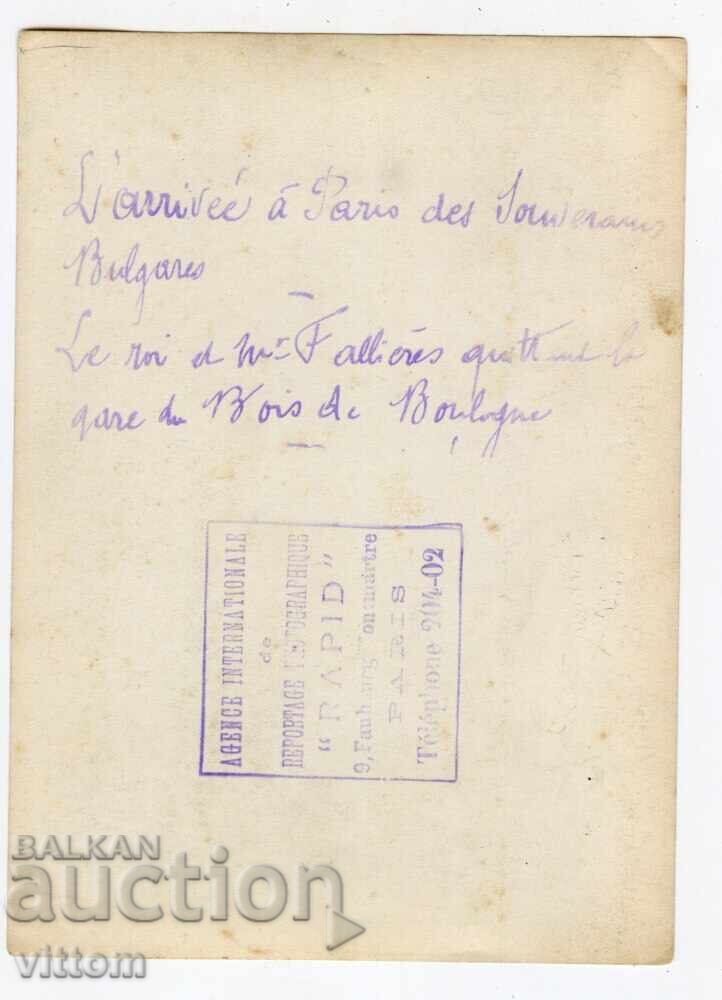 L'arrivée à Paris des Souverains
Bulgares
Le roi et Mr Fallières quittant la
gare du Bois de Boulogne
AGENCE INTERNATIONALE
de
REPORTAGE PHOTOGRAPHIQUE
"RAPID"
9, Faubourg Montmartre
PARIS
Téléphone 204-02
BALKAN
auction
vittom